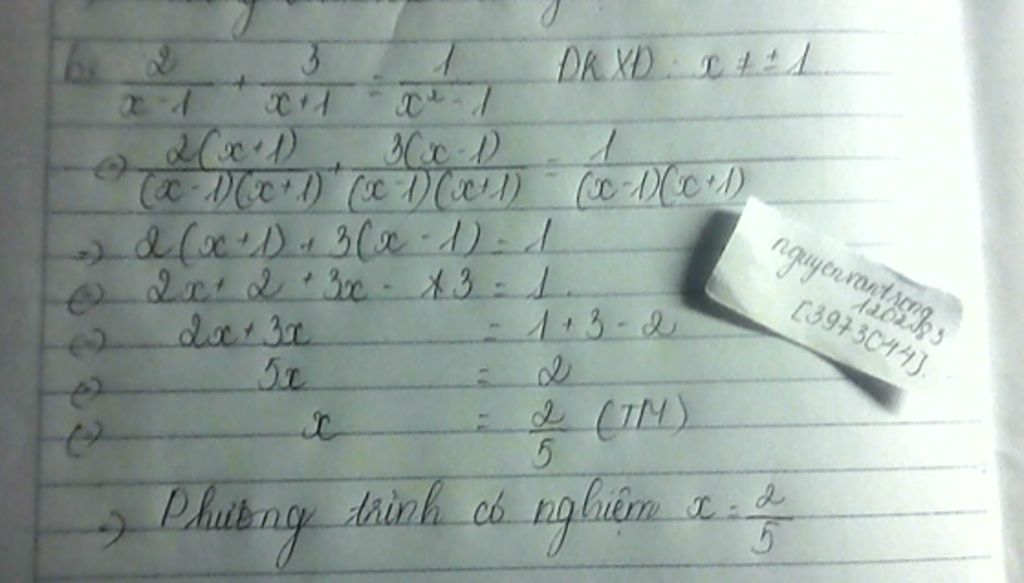 b. 2/(x-1) + 3/(x+1) = 1/(x²-1) ĐKXĐ: x ≠ ±1
(=) 2(x+1)/((x-1)(x+1)) + 3(x-1)/((x-1)(x+1)) = 1/((x-1)(x+1))
=) 2(x+1) + 3(x-1) = 1
(=) 2x + 2 + 3x - 3 = 1.
(=) 2x + 3x = 1 + 3 - 2
(=) 5x = 2
(=) x = 2/5 (TM)
=) Phương trình có nghiệm x = 2/5
nguyenvantrong
[3973044].